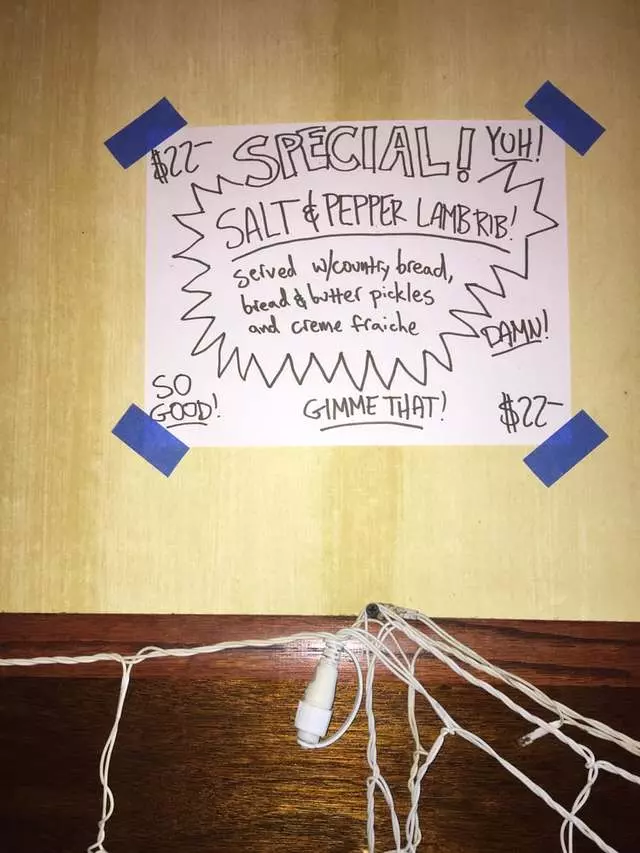 $22-
SPECIAL!
YUH!
SALT & PEPPER LAMB RIB!
served w/country bread,
bread & butter pickles
and creme fraiche
DAMN!
SO
GOOD!
GIMME THAT!
$22-